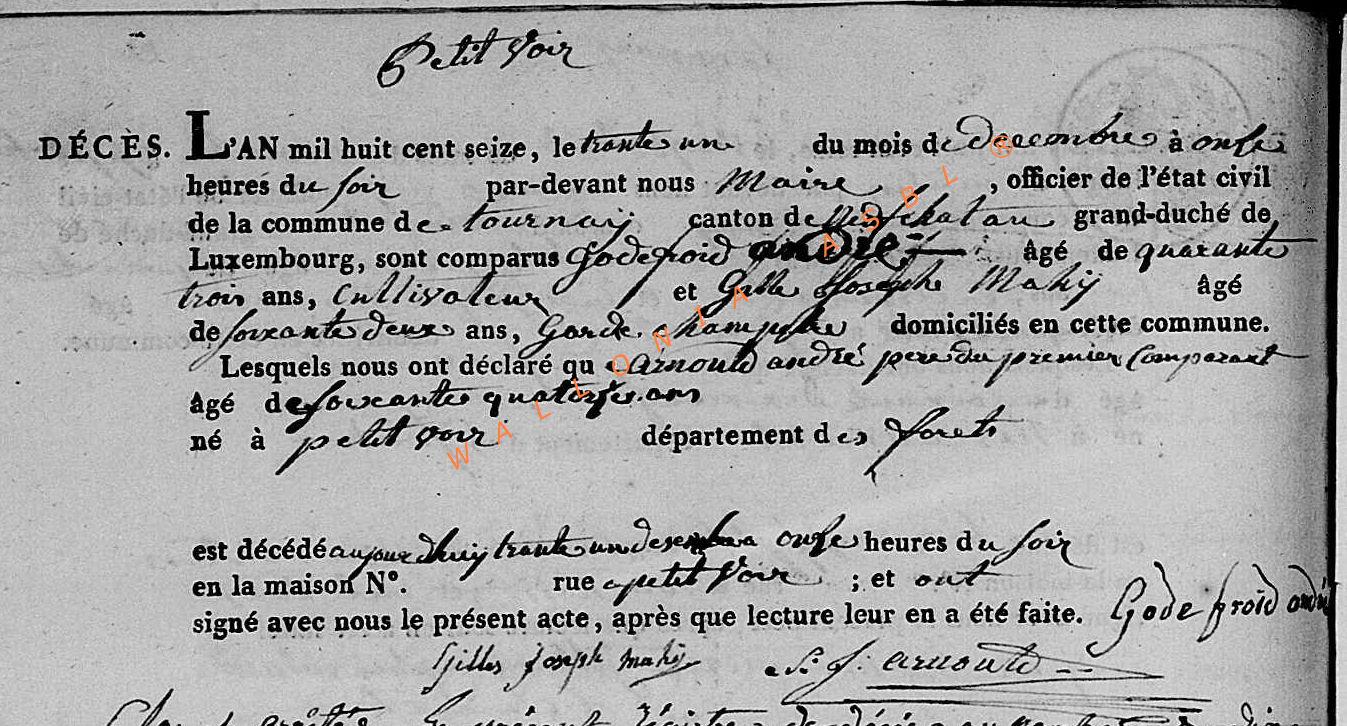 Petit Voir
DÉCÈS. L'AN mil huit cent seize, le trante un du mois de decembre à onse
heures du soir par-devant nous Maire , officier de l'état civil
de la commune de tournay canton de grand-duché de
Luxembourg, sont comparus Godefroid andré âgé de quarante
trois ans, Cultivateur et Gille Joseph Mahy âgé
de soixante deux ans, Garde champetre domiciliés en cette commune.
Lesquels nous ont déclaré qu arnould andré pere du premier Comparant
âgé de soixante quatorse ans
né à petit voir département des forets
est décédé aujourdhuy trante un onse heures du soir
en la maison N°. rue a petit Voir ; et ont
signé avec nous le présent acte, après que lecture leur en a été faite. Godefroid andré
Gilles Joseph mahy J. arnould
WALLONIA ASBL ®